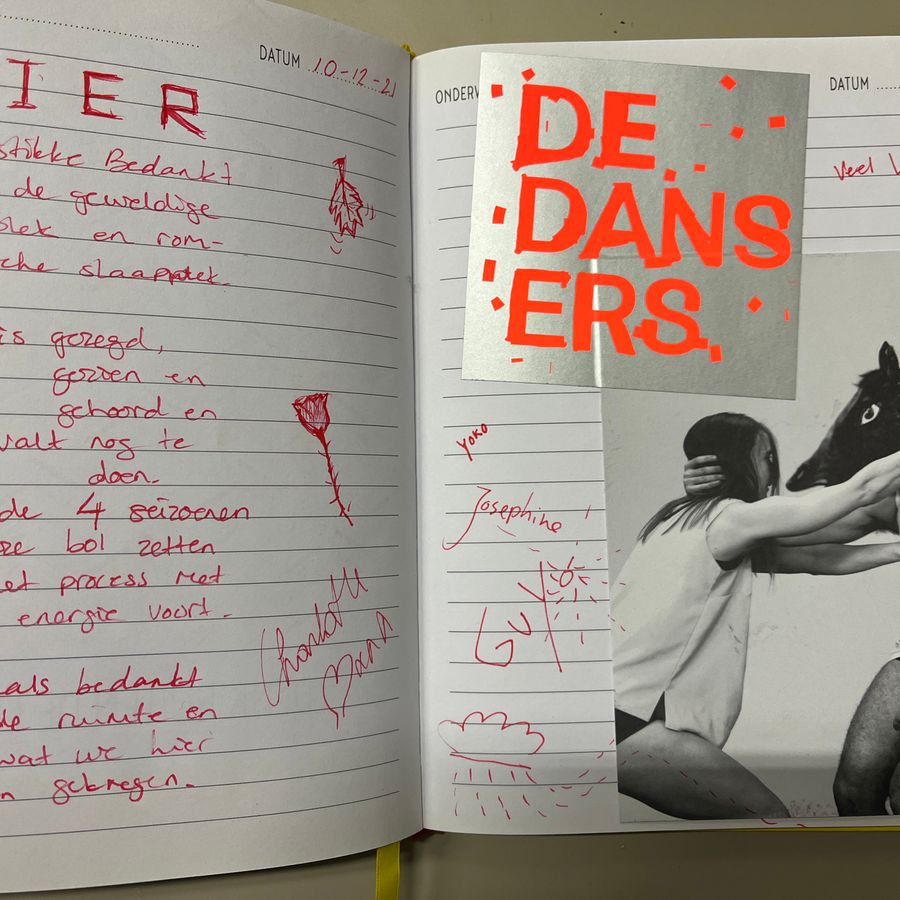 DATUM 10-12-21
IER
stikke Bedankt
de geweldige
plek en rom-
che slaapplek.
is gezegd,
gezien en
gehoord en
valt nog te
doen.
de 4 seizoenen
ze bol zetten
et process met
energie voort.
als bedankt
de ruimte en
wat we hier
n gekregen.
Charlotte
ONDERW
DATUM
DE
DANS
ERS.
Veel
Yoko
Josephine
Guy